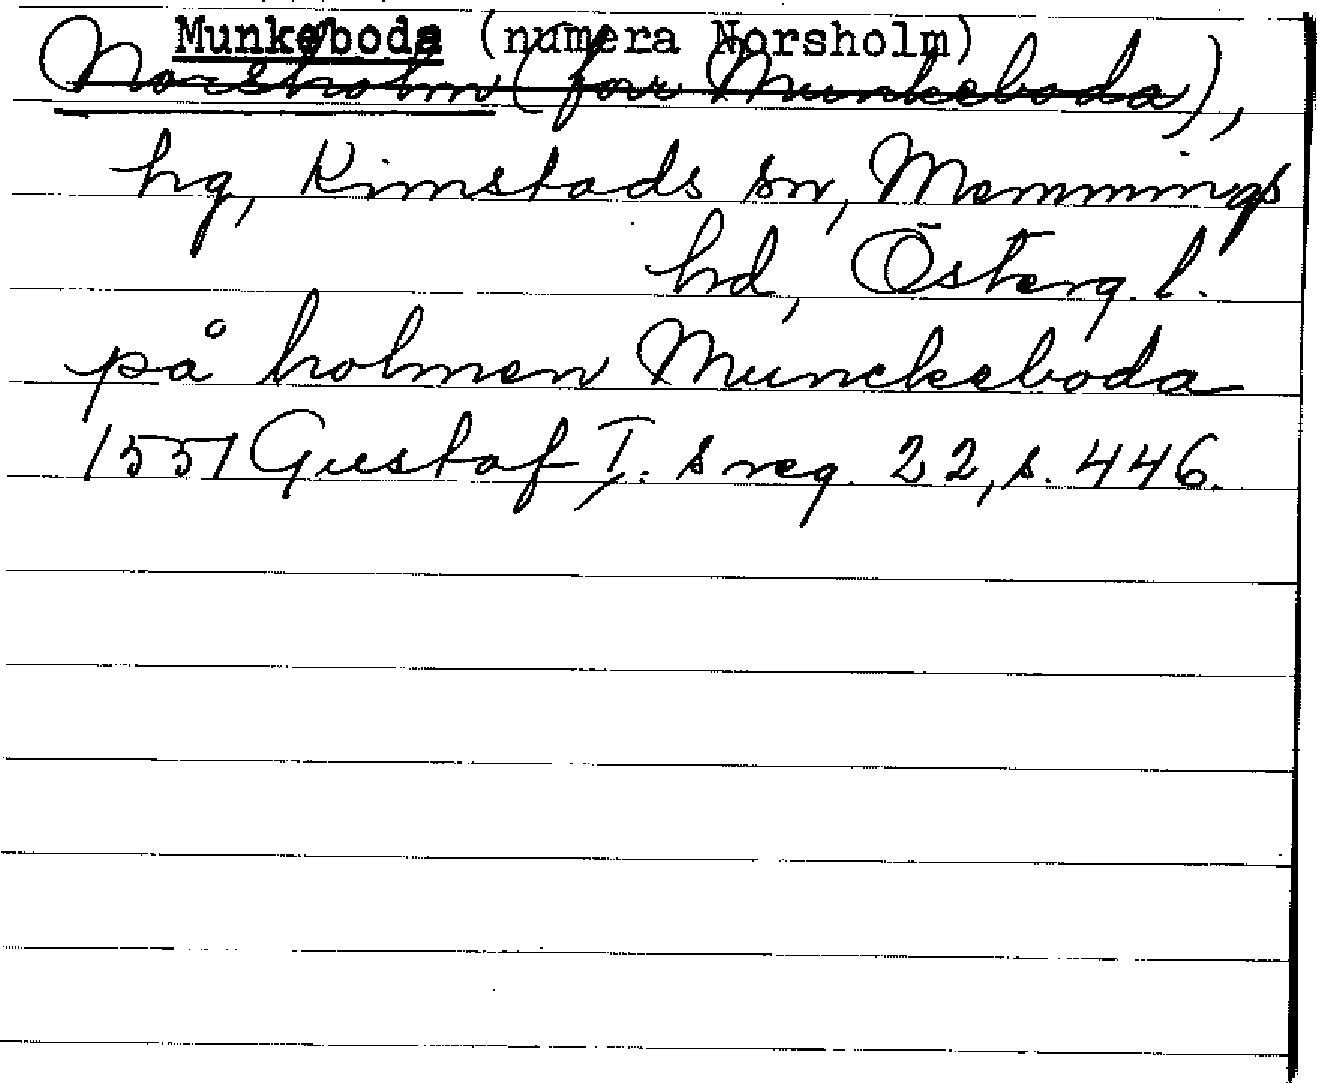 Munkeboda (numera Norsholm)
Norsholm (förr Munkeboda),
hg, Kimstads sn, Memmings
hd, Österg. l.
på holmen Munckeboda
1551 Gustaf I. s reg. 22, s. 446.